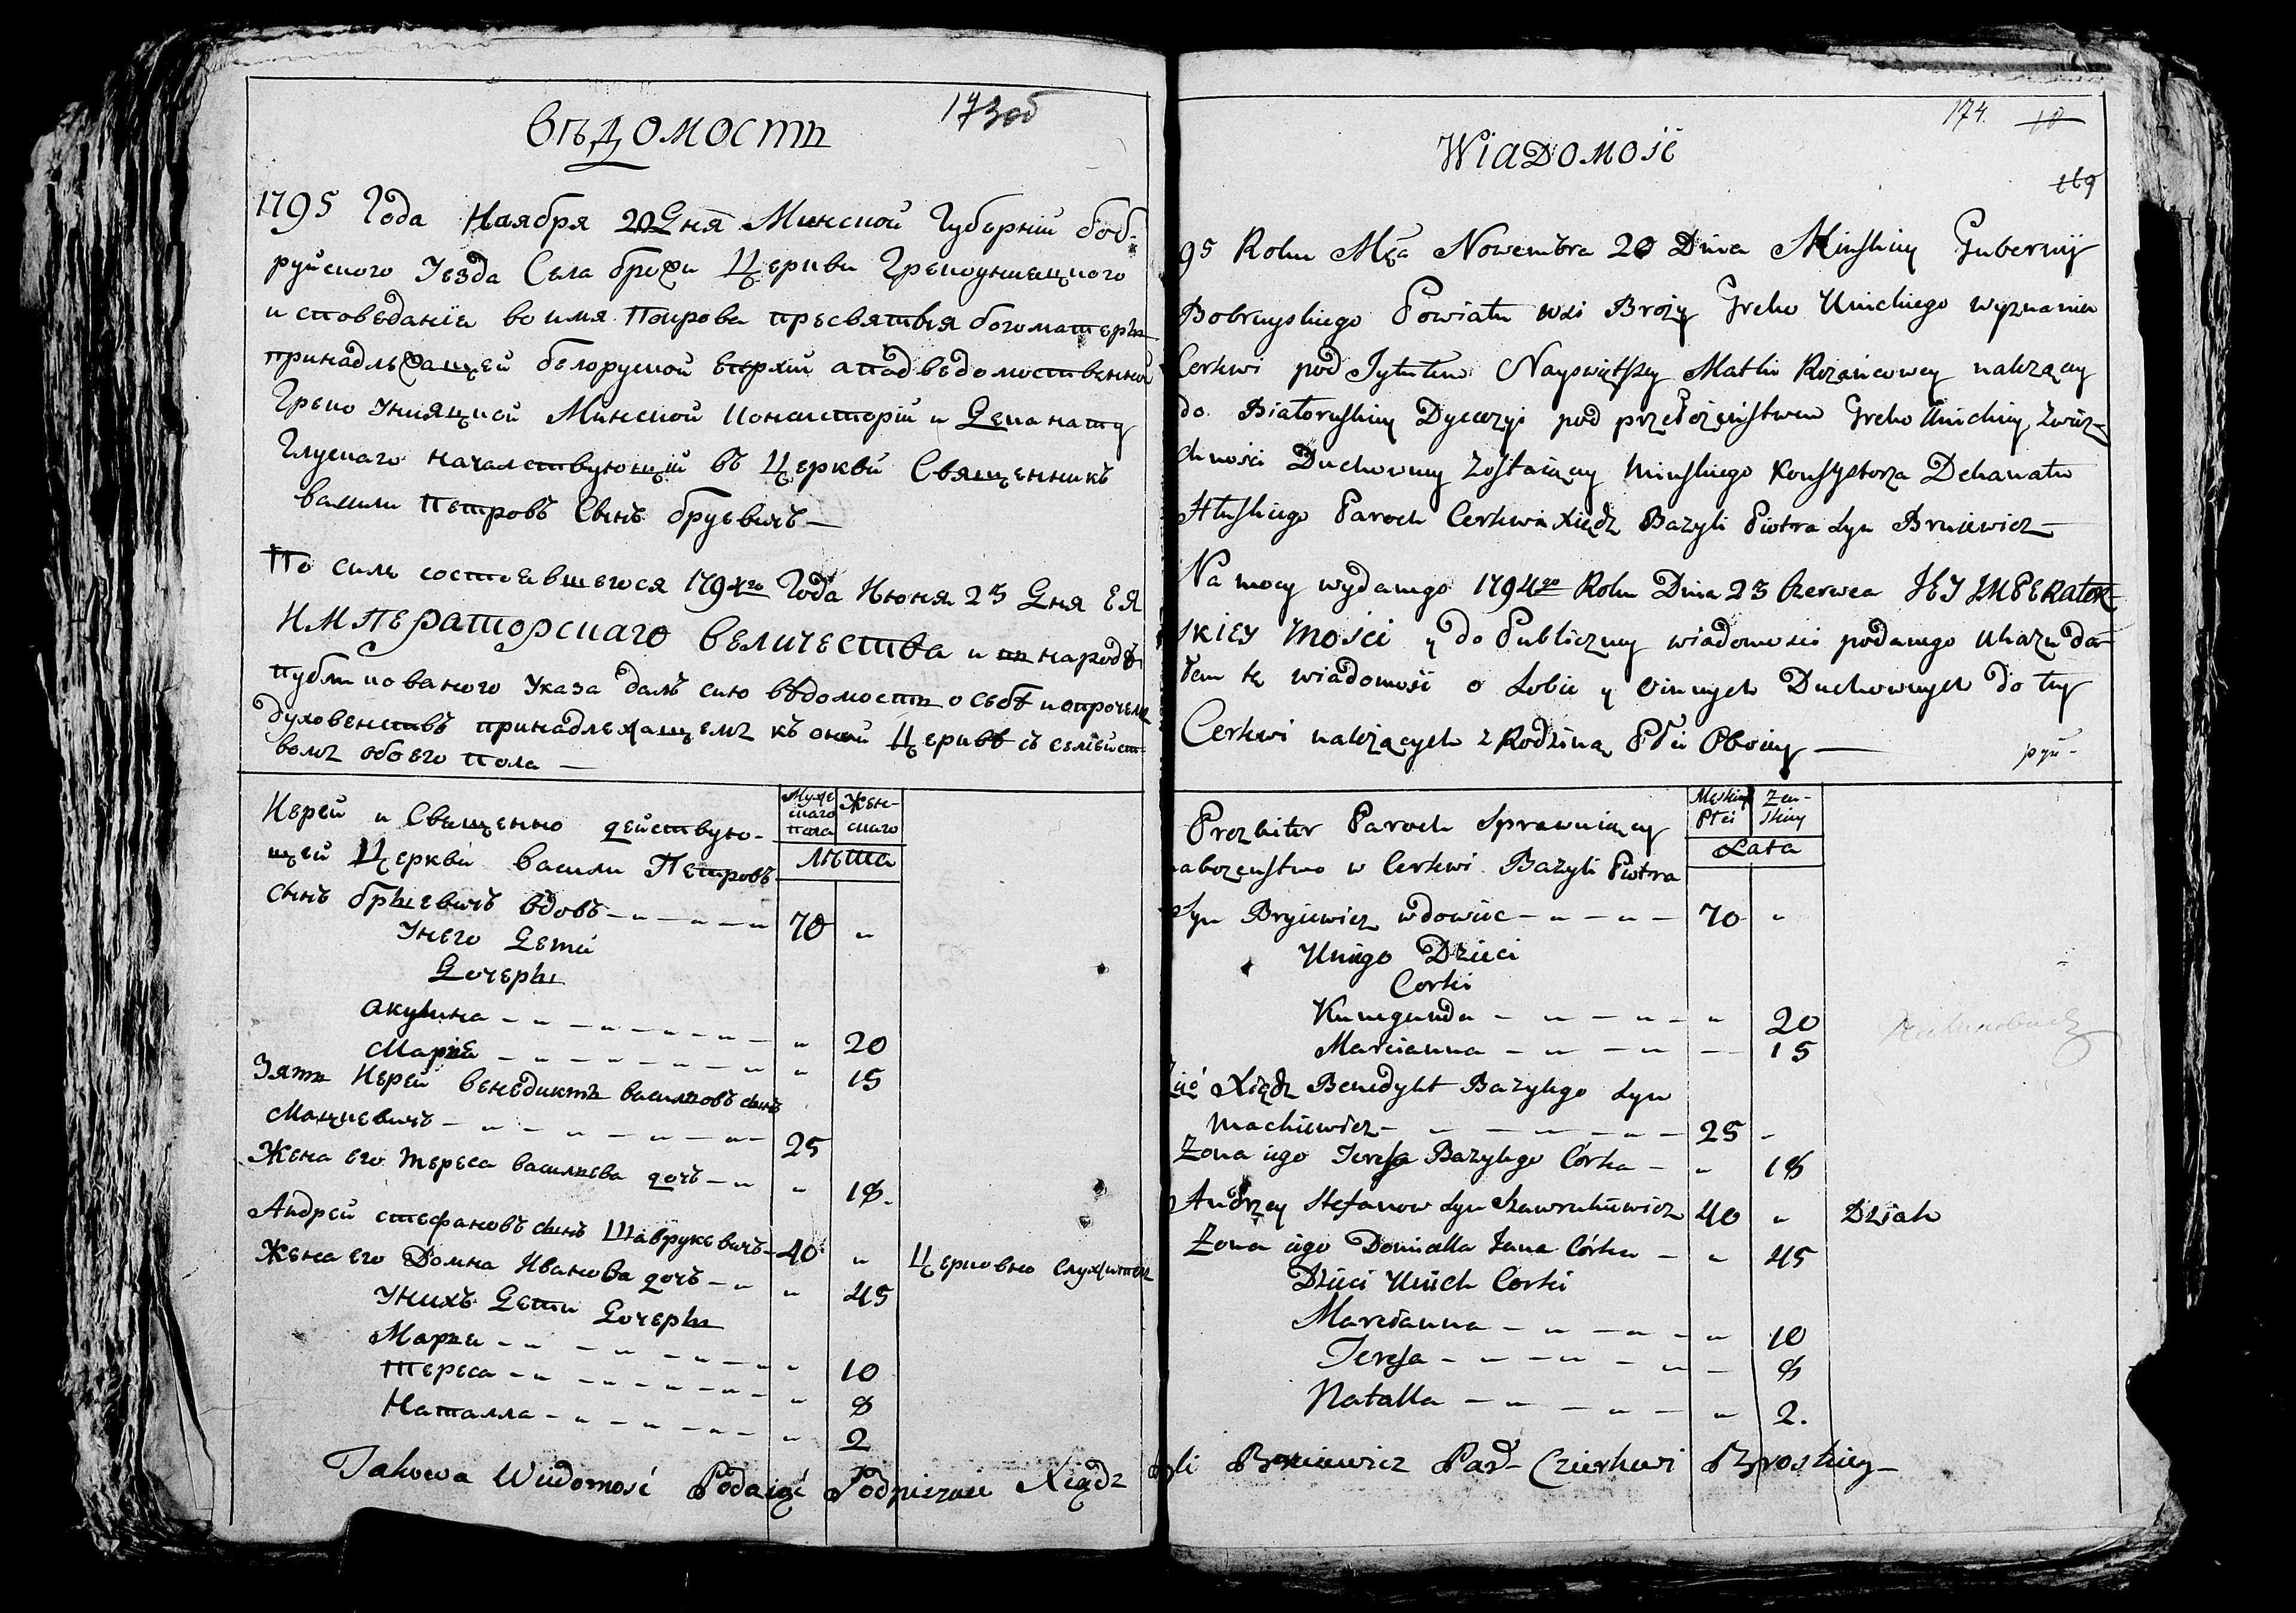 173об
Вѣдомость
1795 Года Ноября 20 Дня Минской Губерніи боб-
руйского Уезда Села брожи Церкви Грекоуниецкого
исповеданіа во имя Покрова пресвятыя богоматеры
принадлежащей белоруской епархіи а подведомственной
Греко Униацкой Минской Консисторіи и Деканату
Глускаго началствующій въ Церкви Священникъ
василии Петровъ Сынъ бруевичъ —
По силе состоявшегося 1794го Года Июня 23 Дня ЕЯ
ИМПЕРаторскаго ВЕЛИЧЕства и въ народѣ
публикованого Указа далъ сию вѣдомость о себѣ и о прочемъ
духовенствѣ принадлежащемъ къ оной Церквѣ съ семеист-
вомъ обоего Пола —
Муже
скаго
пола
Жен-
скаго
Лѣта
Иерей и Священно действую-
щей Церкви василии Петровъ
сынъ бруевичъ вдовъ 70 "
У него Дети
Дочеры
Акулина " 20
Мария " 15
Зять Иерей венедиктъ василиовъ сынъ
Мацкевичъ 25
Жена его тереса василиева дочъ " 18.
Андрей стефановъ сынъ Шаврукевичъ 40 " Церковно служитель
Жена его Домна Иванова дочъ " 45
У нихъ Дети Дочеры
Марья " 10
Тереса " 8
Наталла " 2
Takowa Wiadomość Podaiąć Podpisuie Xiądz
174. 10
169
WiaDOMOść
95 Roku Mca Nowembra 20 Dnia Minskiey Gubernij
Bobruyskiego Powiatu wsi Broży Greko Unickiego wyznania
Cerkwi pod Tytułem Nayswiętszey Matki Rożańcowey należącey
do Białoruskiey Dyecezyi pod przełożeństwem Greko Unickiey Zwierz-
chności Duchowney Zostaiącey Minskiego Konsystorza Dekanatu
Hłuskiego Paroch Cerkwi Xiądz Bazyli Piotra Syn Bruiewicz —
Na mocy wydanego 1794go Roku Dnia 23 Czerwca JEJ IMPERAtOR-
SKIEY MOŚCi y do Publiczney wiadomości podanego Ukazu da-
łem tę wiadomość o Sobie y o innych Duchownych do tey
Cerkwi należących z Rodziną Płci Oboiey —
руй-
Męskiey
Płci
Żen-
skiey
Lata
Prezbiter Paroch Sprawuiący
nabożeństwo w Cerkwi Bazyli Piotra
Syn Bryiewicz wdowiec 70 "
U niego Dzieci
Corki
Kunegunda " 20
Marcianna — 15
Zięć Xiądz Benedykt Bazylego Syn
Mackiewicz 25 -
Żona iego Teresa Bazylego Córka " 18
Andrzey Stefanow Syn Szawrukiewicz 40 " Dziak
Żona iego Domicella Jana Córka " 45
Dzieci U nich Corki
Marcianna " 10
Teresa — 8
Natalla " 2.
Bruiewicz Par Czerkwi Broskiey